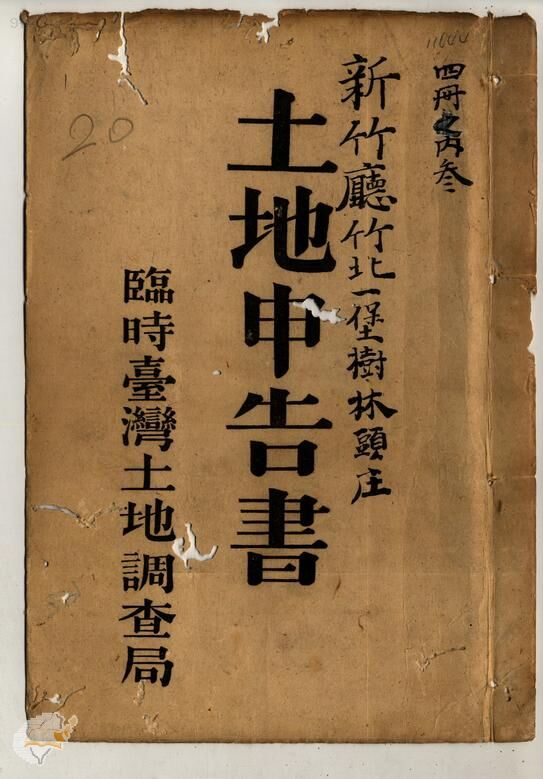 四冊之內叄
新竹廳竹北一堡樹林頭庄
土地申告書
臨時臺灣土地調查局
20